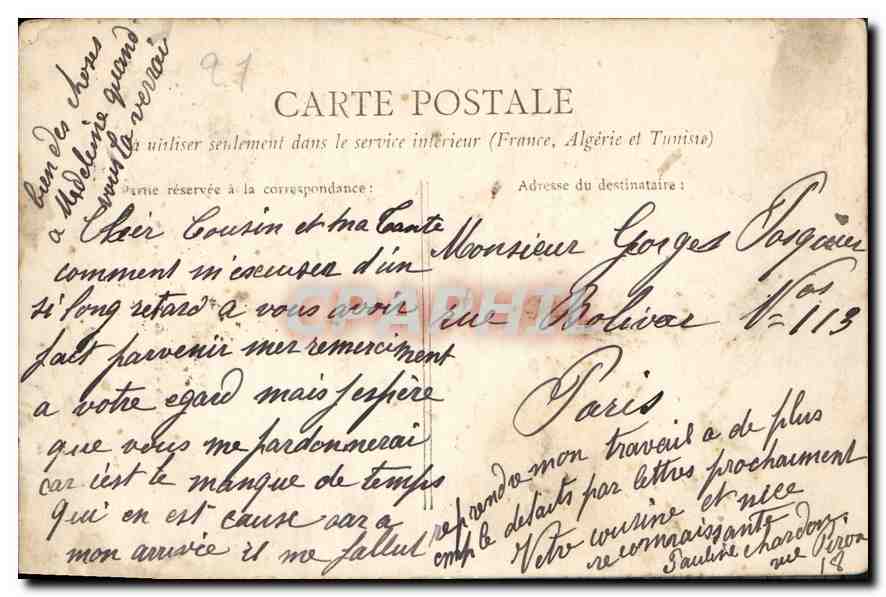 bien des choses
a Madeleine quand
vous la verrai
27
CARTE POSTALE
a utiliser seulement dans le service intérieur (France, Algérie et Tunisie)
Partie réservée à la correspondance :
Adresse du destinataire :
Cher Cousin et ma Tante
comment m'excuser d'un
si long retard a vous avoir
fait parvenir mes remerciment
a votre egard mais j'espère
que vous me pardonnerai
car c'est le manque de temps
qui en est cause car a
mon arrivée il me fallut
reprendre mon travail a de plus
emple detaits par lettres prochaiment
Votre cousine et niece
reconnaissante
Pauline Chardon
rue Piron
18
Monsieur Gorges
rue Bolivar Nos 113
Paris
CPARAMA